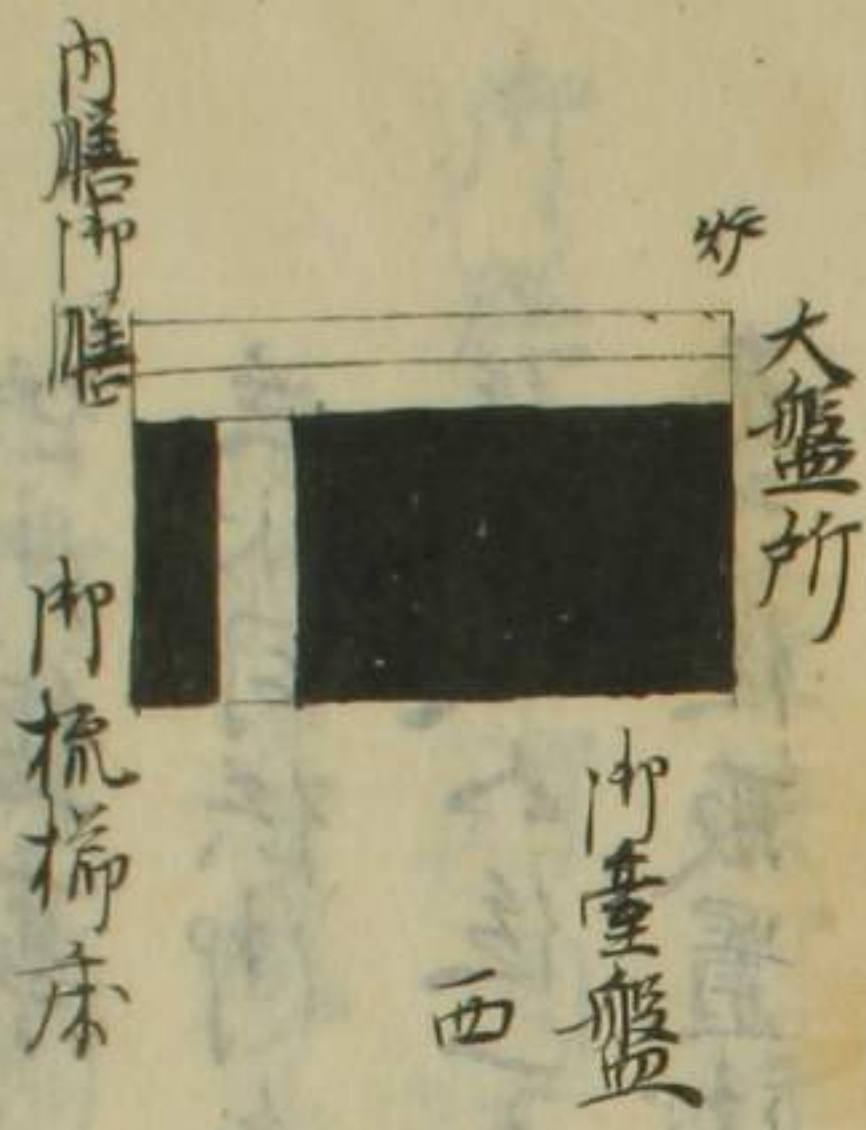 炉
大盤所
御臺盤
西
内膳御膳
御梳櫛床